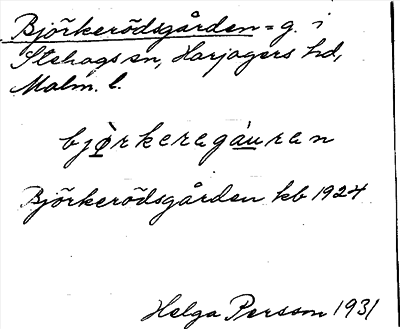 Björkerödsgården = g. i
Stehags sn, Harjagers hd,
Malm. l.
bjò̲rkeragàu̲ran
Björkerödsgården kb 1924
Helga Persson 1931